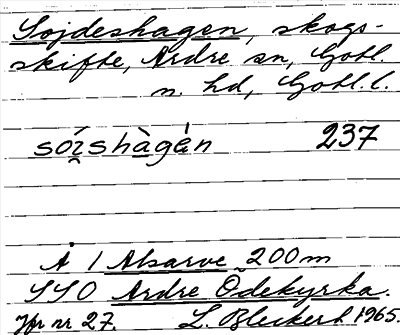 Sojdeshagen, skogs-
skifte, Ardre sn, Gotl.
n. hd, Gotl. l.
sói̯shàgén 237
Å 1 Alsarve 200m
SSO Ardre Ödekyrka.
Jfr nr 27. L. Bleckert. 1965.